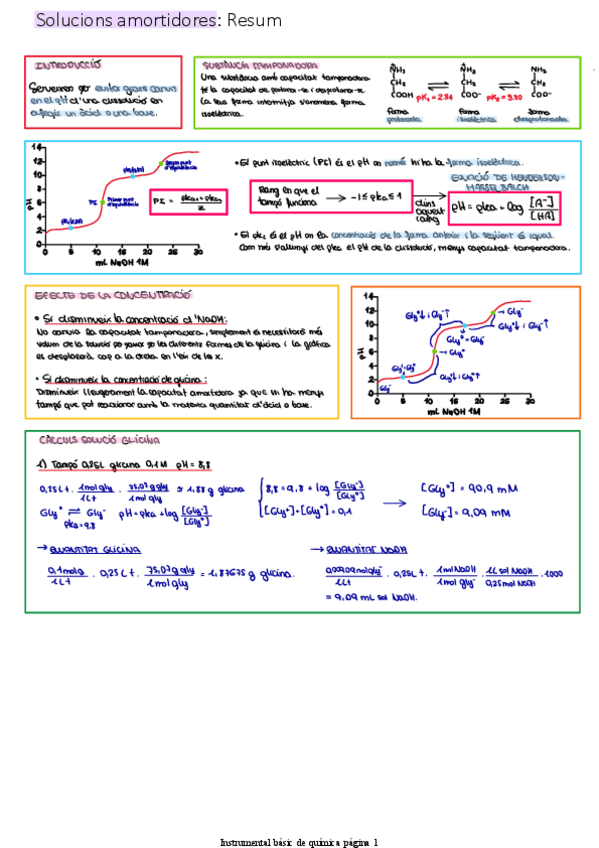 Solucions amortidores: Resum
INTRODUCCIÓ
Serveixen per evitar grans canvis
en el pH d'una dissolució en
afegir un àcid o una base.
SUBSTÀNCIA TAMPONADORA
Una substància amb capacitat tamponadora
té la capacitat de protonar-se i desprotonar-se.
La seva forma intermitja s'anomena forma
isoelèctrica.
NH3 NH3 NH2
CH2 CH2 CH2
COOH COO- COO-
pK1 = 2.34 pK2 = 9.80
forma forma forma
protonada isoelèctrica desprotonada
14
12
10
8
6
4
2
0
pH
0 5 10 15 20 25 30
mL NaOH 1M
PI
Primer punt
d'equivalència
Segon punt
d'equivalència
PI = pka1+pka2 / 2
• El punt isoelèctric (PI) és el pH on només hi ha la forma isoelèctrica.
Rang en que el
tampó funciona → -1 ≤ pka ≤ 1
dins
aquest
rang
EQUACIÓ DE HENDERSON-
HASSELBALCH
pH = pka + log [A-]/[HA]
• El pk1 és el pH on la concentració de la forma anterior i la següent és igual.
Com més s'allunyi del pka el pH de la dissolució, menys capacitat tamponadora.
EFECTE DE LA CONCENTRACIÓ
• Si disminueix la concentració d'NaOH:
No canvia la capacitat tamponadora, simplement es necessitarà més
volum de la solució per passar per les diferents formes de la glicina i la gràfica
es desplaçarà cap a la dreta en l'eix de la x.
• Si disminueix la concentració de glicina:
Disminueix lleugerament la capacitat amortidora ja que hi ha menys
tampó que pot reaccionar amb la mateixa quantitat d'àcid o base.
14
12
10
8
6
4
2
0
pH
0 5 10 15 20 25 30
mL NaOH 1M
CÀLCULS SOLUCIÓ GLICINA
1) Tampó 0,25L glicina 0,1M pH = 8,8
[Gly±] = 90,9 mM
[Gly-] = 9,09 mM
pka = 9.8
pH = pka + log [Gly-]/[Gly±]
8,8 = 9,8 + log [Gly-]/[Gly±]
[Gly±] + [Gly-] = 0,1
→ QUANTITAT GLICINA
0,1mol gly/1Lt · 0,25Lt · 75,07g gly/1mol gly = 1,87675 g glicina.
→ QUANTITAT NaOH
1mol NaOH/1mol gly · 1L sol NaOH/0,25mol NaOH · 1000
= 9,09 mL sol NaOH.
Instrumental bàsic de química página 1